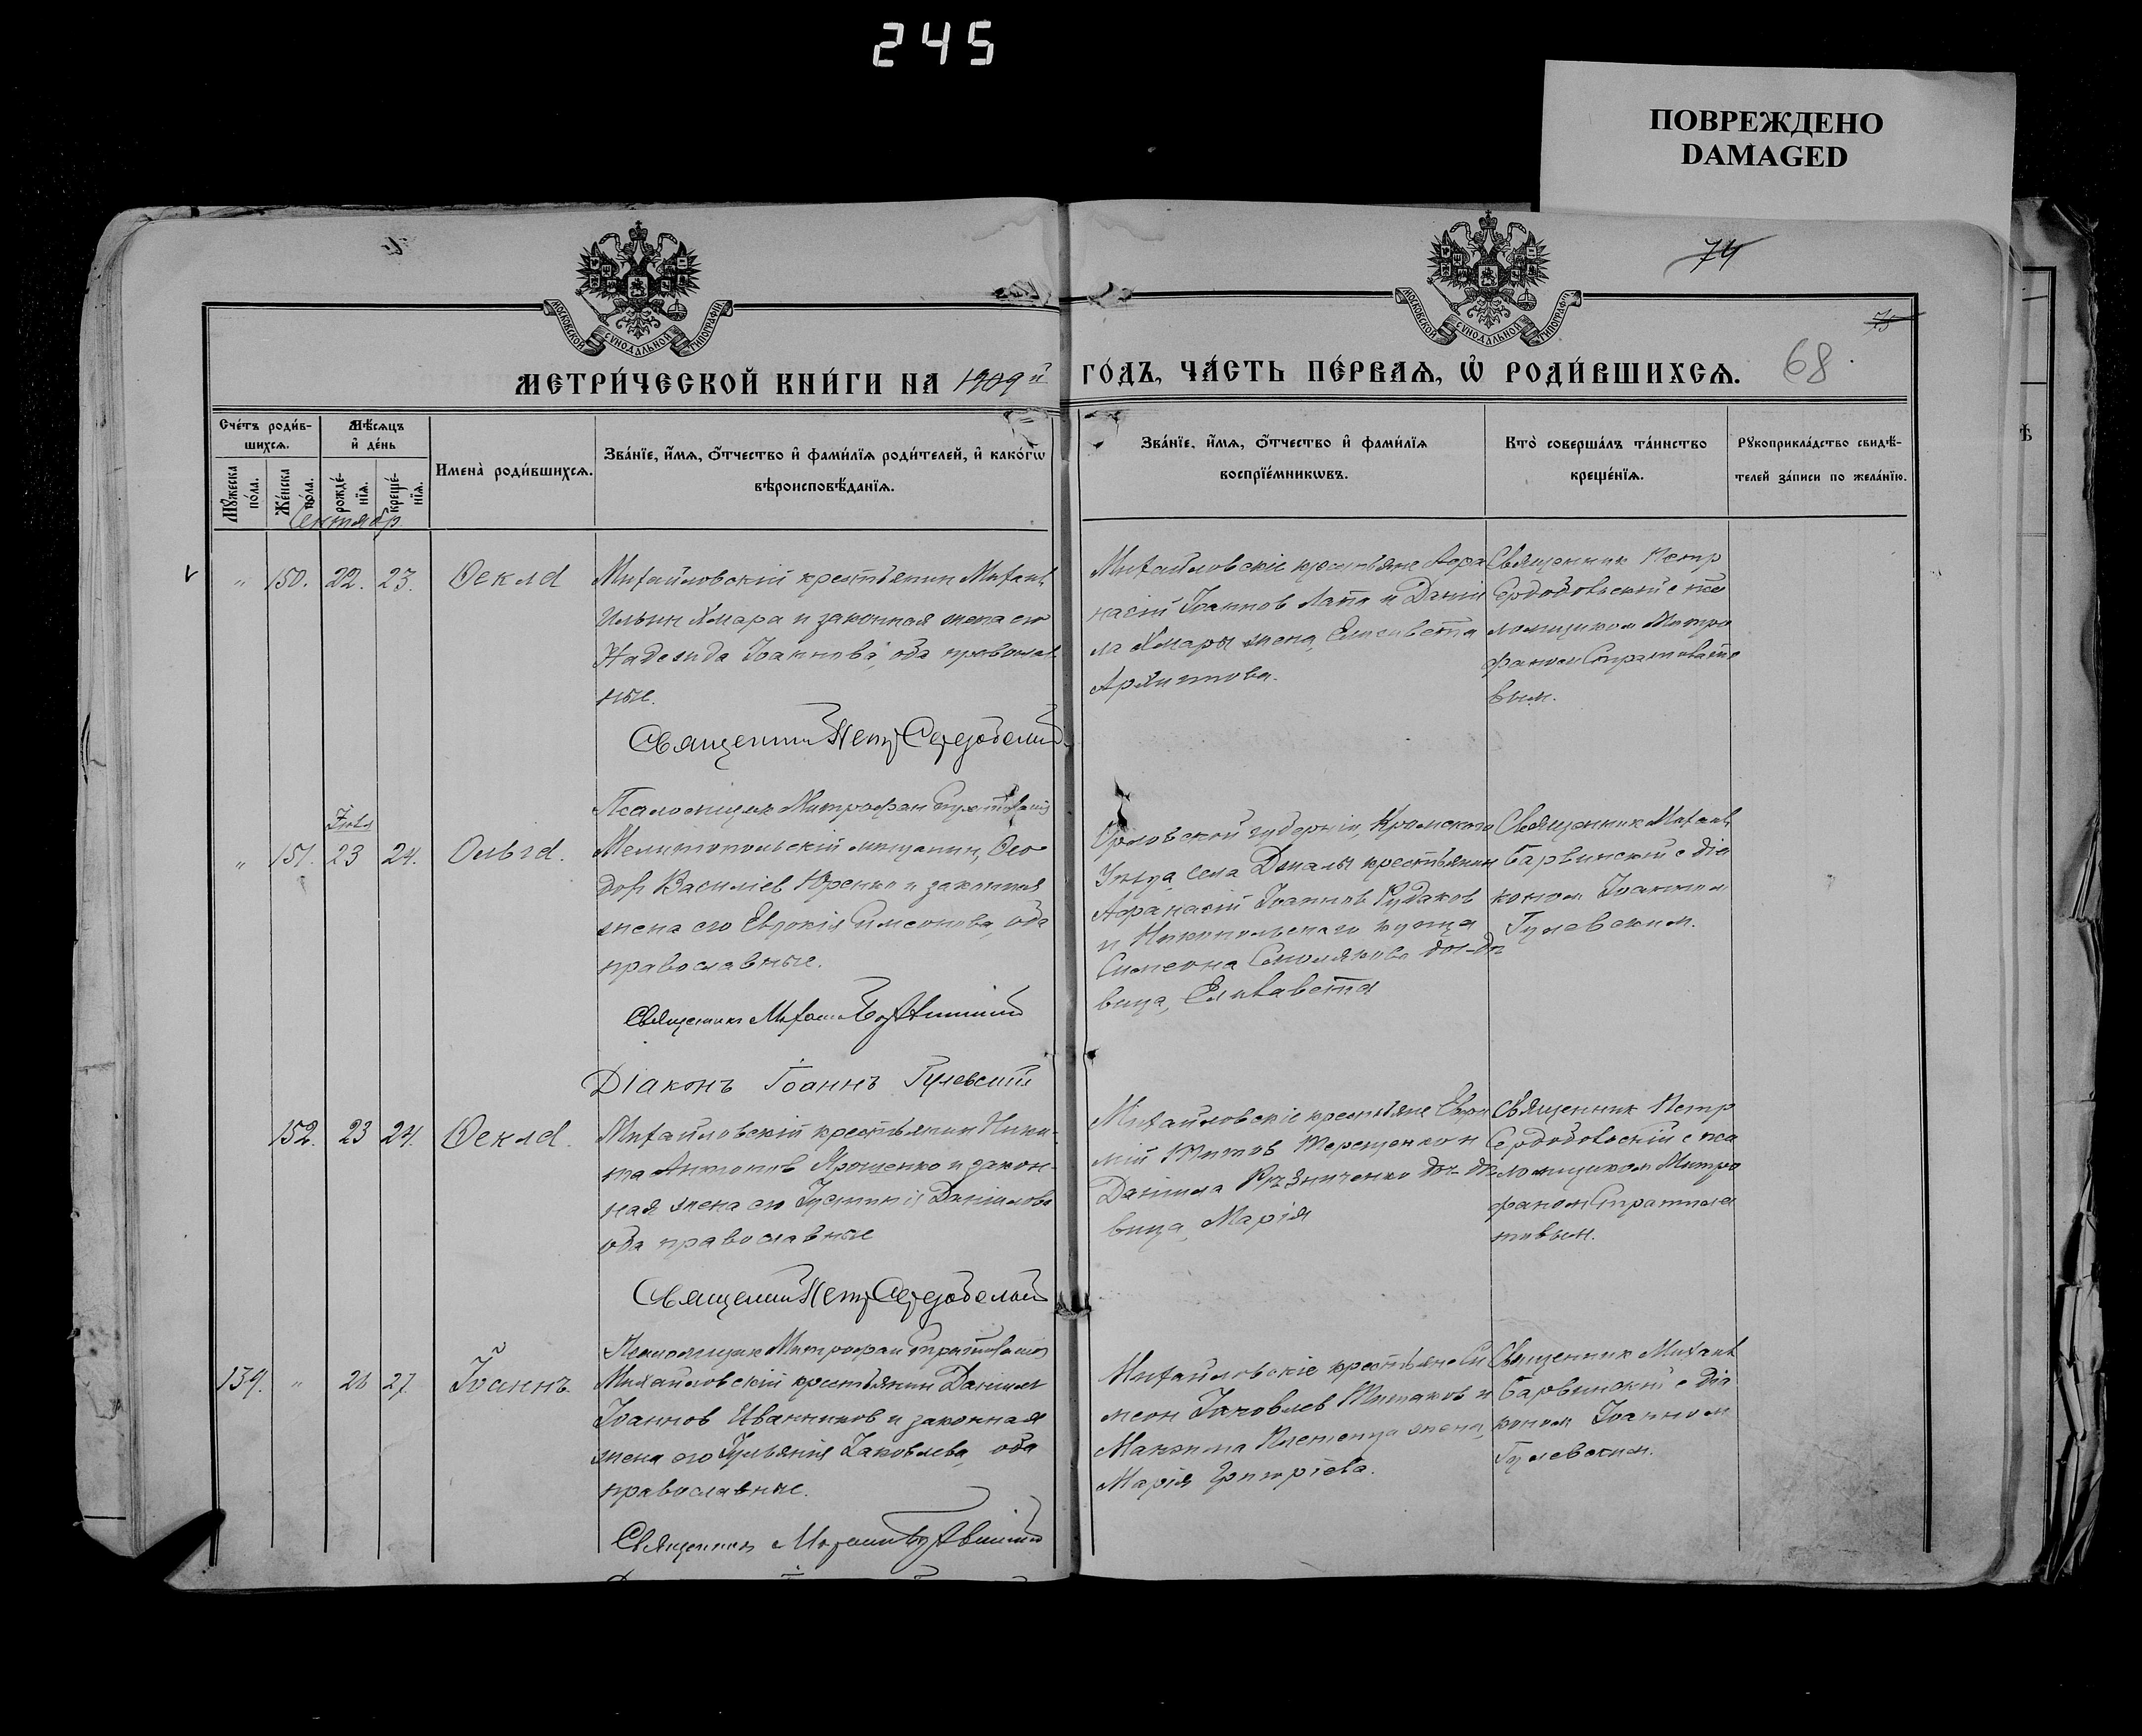 245
ПОВРЕЖДЕНО
DAMAGED
74
75
68
МОСКОВСКОЙ СѴНОДАЛЬНОЙ ТИПОГРАФІИ
МОСКОВСКОЙ СѴНОДАЛЬНОЙ ТИПОГРАФІИ
МЕТРИ́ЧЕСКОЙ КНИ́ГИ НА 1909й ГО́ДЪ, ЧА́СТЬ ПЕ́РВАѦ, Ѡ҆ РОДИ́ВШИХСѦ.
Сче́тъ роди́в-
шихсѧ.
Мꙋ́жеска по́ла.
Же́нска по́ла.
Мѣ́сѧцъ
и҆ де́нь
рожде́-
нїѧ.
креще́-
нїѧ.
Имена̀ роди́вшихсѧ.
Зва́нїе, и҆́мѧ, ѻ҆́тчество и҆ фами́лїѧ роди́телей, и҆ како́гѡ
вѣроисповѣ́данїѧ.
Зва́нїе, и҆́мѧ, ѻ҆́тчество и҆ фами́лїѧ
воспрїе́мникѡвъ.
Кто̀ соверша́лъ та́инство
креще́нїѧ.
Рꙋкоприкла́дство свидѣ́-
телей за́писи по жела́нїю.
Сентябр
" 150. 22. 23. Ѳекла
Михайловскій крестьянин Михаил
Ильин Хмара и законная жена его
Надежда Іоаннова, оба православ
ные.
Священник Петр
Михайловскіе крестьяне Афа
насій Іоаннов Лапа и Дании
ла Хмары жена, Елисавета
Священник Петр
с пса
ломщиком Митро
фаном
вым.
Псаломщик Митрофан
" 151. 23 24. Ольга.
Мелитопольскій мещанин, Ѳео
дор Василіев Юренко и законная
жена его Евдокія Симеонова, оба
православные.
Священник Михаил
Діаконъ Іоаннъ Гулевскій
Орловской губерніи, Кромского
уезда, села крестьянин
Афанасій Іоаннов Рудаков
и Никопольскаго купца
Симеона
вица, Елисавета
Священник Михаил
Барвинскій с діа
коном Іоанном
Гулевским.
152. 23 24. Ѳекла.
Михайловскій крестьянин Ники-
та Антонов Ярошенко и закон-
ная жена его Іустинія Даніилова
оба православные
Священник Петр
Псаломщик Митрофан
Михайловскіе крестьяне
мій Титов Терещенко и
Даніила
вица, Марія
Священник Петр
с пса
ломщиком Митро
фаном Стратила
товым.
139. " 26 27. Іоаннъ
Михайловскій крестьянин Даніил
Іоаннов Иванников и законная
жена его Іульянія Іаковлева, оба
православные.
Священник Михаил
Михайловскіе крестьяне Си
меон Іаковлев и
Максима жена,
Марія Григоріева.
Священник Михаил
Барвинскій с діа
коном Іоанном
Гулевским.